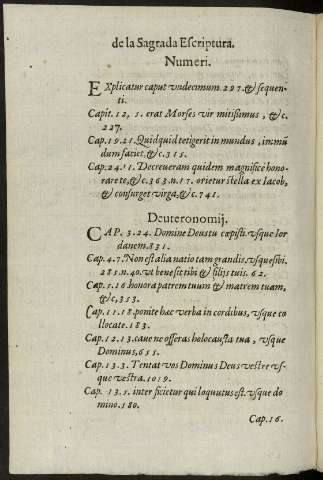 de la Sagrada Escriptura.
Numeri.
EXplicatur caput vndecimum 297. & sequen-
ti.
Capit. 12, 5. erat Moyses vir mitissimus, &c.
227.
Cap. 19. 21. Quidquid tetigerit inmundus, inmũ
dum faciet, &c. 315.
Cap. 24. 11. Decreueram quidem magnifice hono-
rare te, &c. 363. n. 17. orietur stella ex Iacob,
& consurget virga, &c. 741.
Deuteronomij.
CAP. 3. 24. Domine Deus tu cæpisti. vsque Ior
danem. 831.
Cap. 4. 7. Non est alia natio tam grandis. vsque sibi.
285. n. 40. vt bene sit tibi & filijs tuis. 62.
Cap. 5. 16 honora patrem tuum & matrem tuam,
&c, 353.
Cap. 11. 18. ponite hæc verba in cordibus, vsque co
llocate. 183.
Cap. 12. 13. caue ne offeras holocausta tua, vsque
Dominus, 655.
Cap. 13. 3. Tentat vos Dominus Deus vestre vs-
que vestra. 1019.
Cap. 13. 5. interficietur qui loquutus est. vsque do
mino. 180.
Cap. 16.